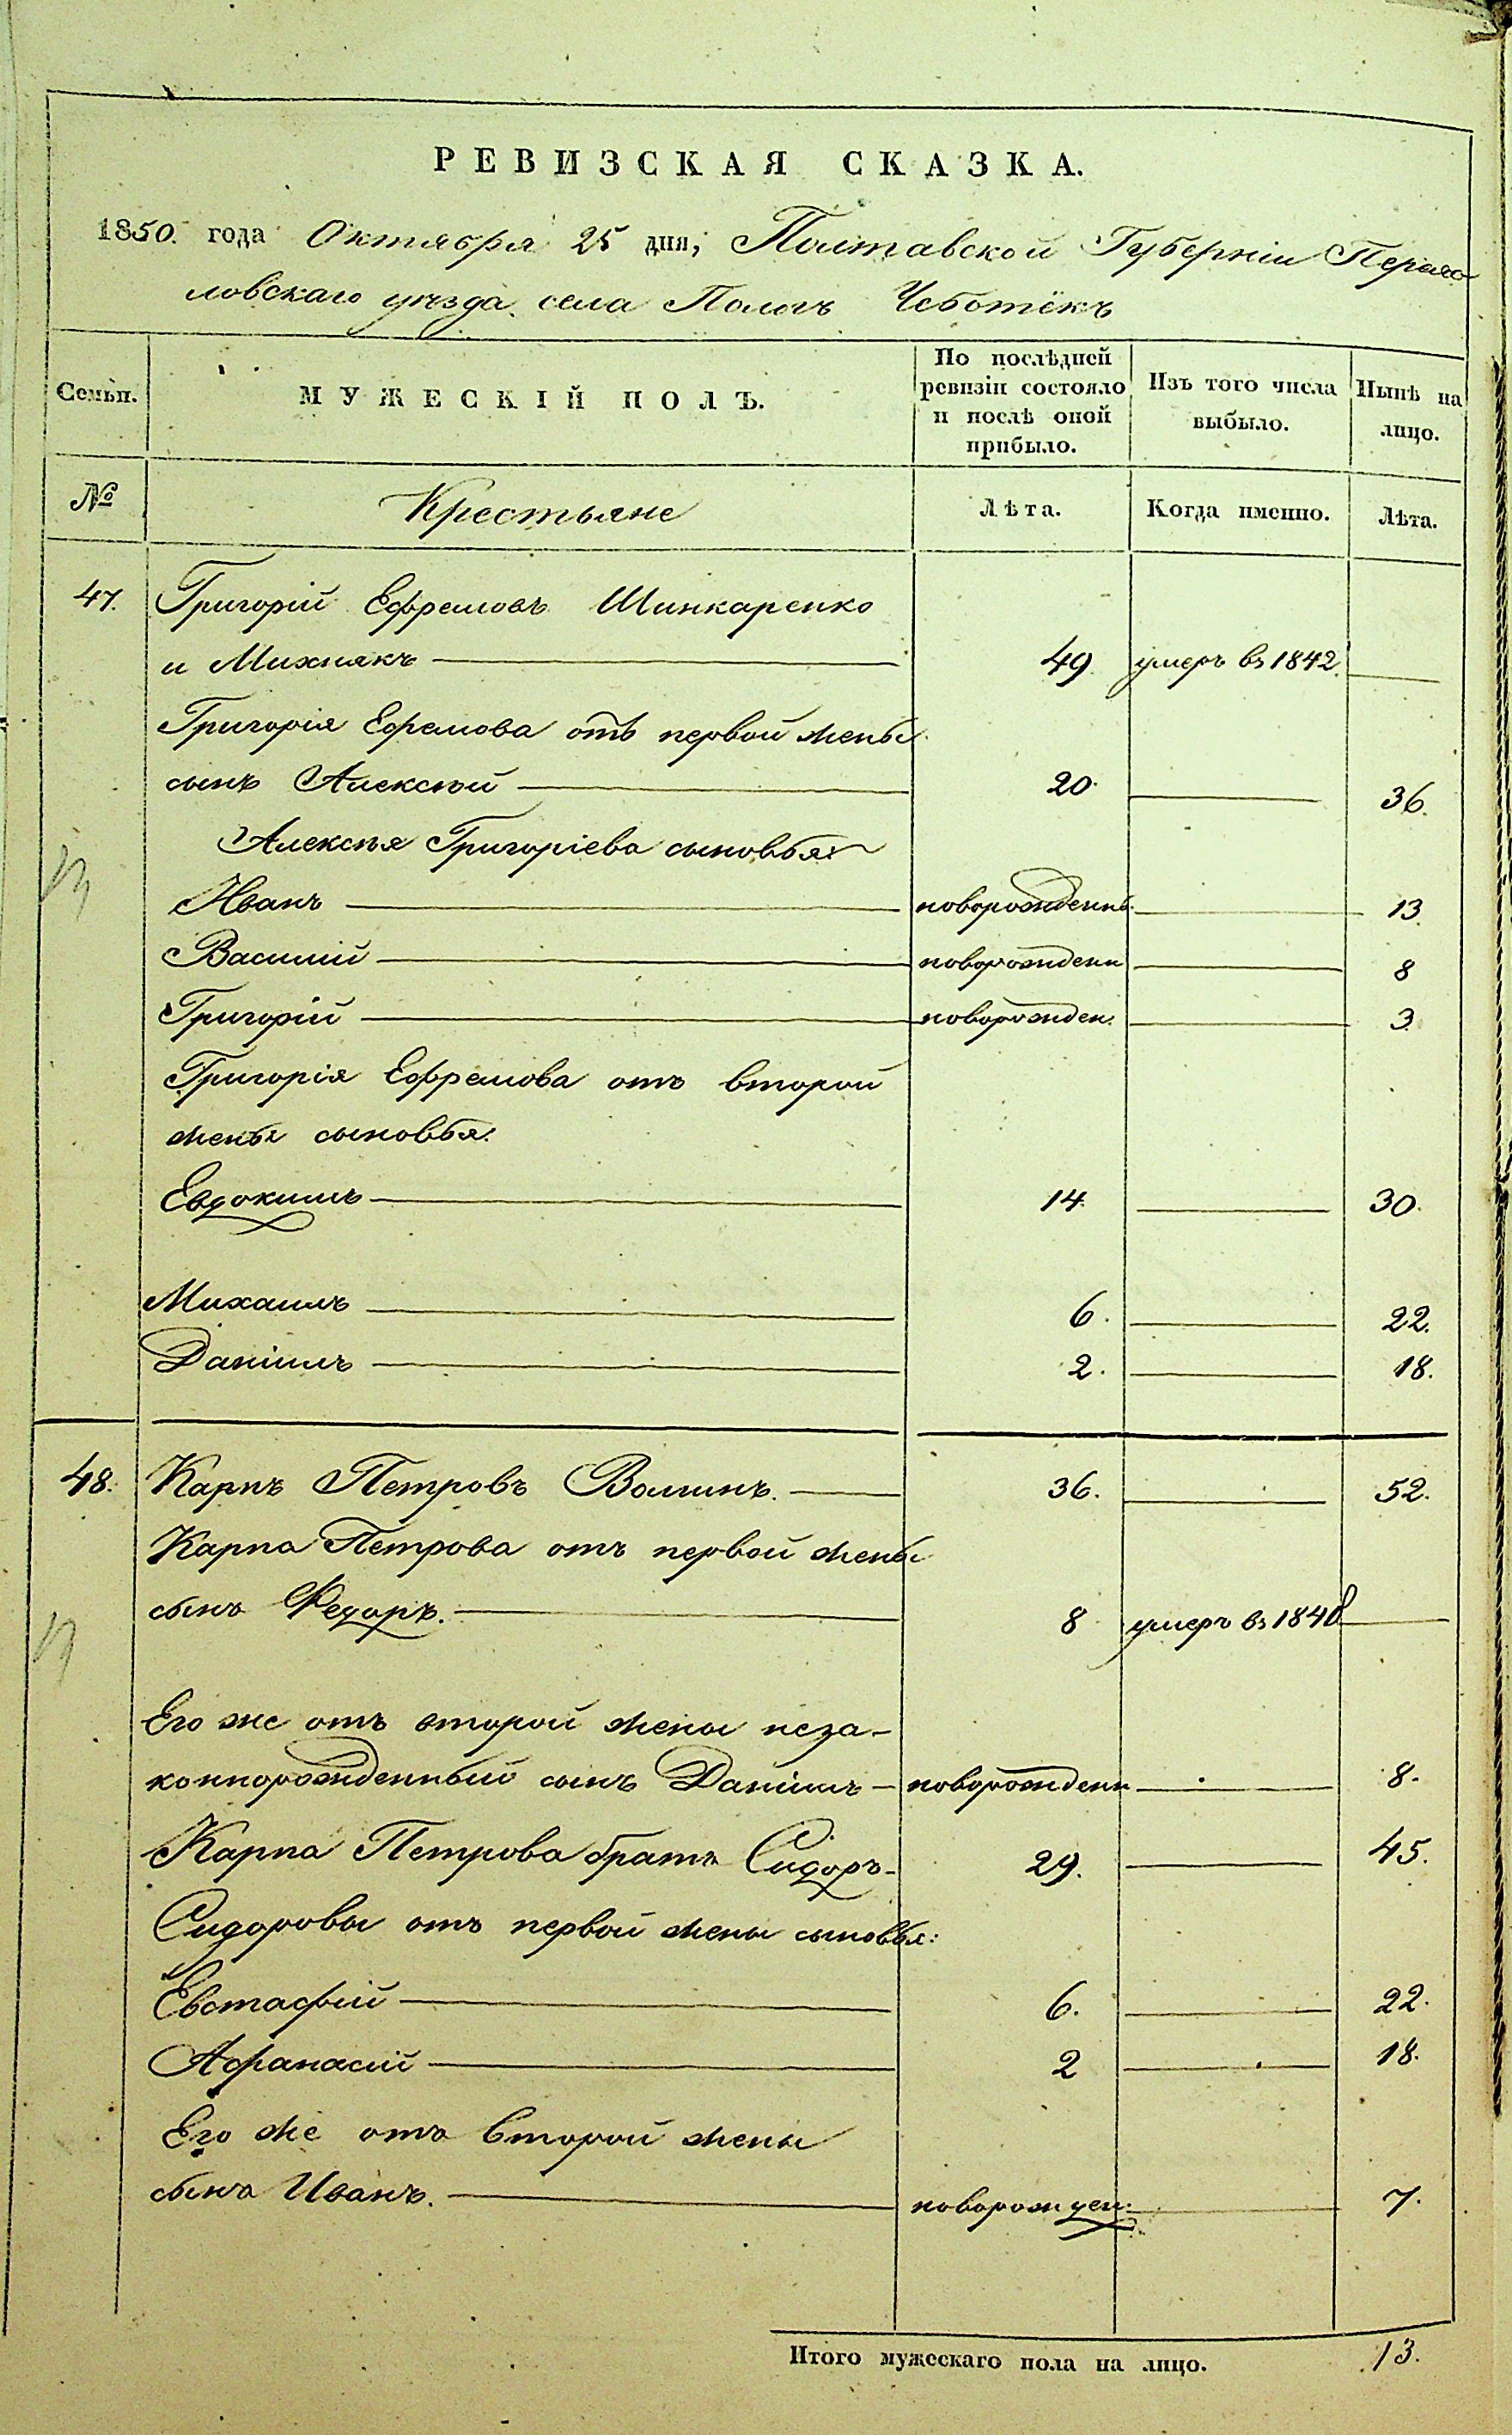 РЕВИЗСКАЯ СКАЗКА.
1850. года Октября 25 дня, Полтавской Губерніи Переяс-
ловскаго уѣзда села Пологъ Чеботёкъ
Семьи. МУЖЕСКІЙ ПОЛЪ. По послѣдней ревизіи состояло и послѣ оной прибыло. Изъ того числа выбыло. Нынѣ на лицо.
№ Крестьяне Лѣта. Когда именно. Лѣта.
47. Григорій Ефремовъ Шинкаренко
и Михнякъ 49 умеръ въ 1842.
Григорія Ефремова отъ первой жены
сынъ Алексѣй 20. 36.
Алексѣя Григоріева сыновья:
Иванъ новорожденнъ. 13
Василій новорожденн 8
Григорій новорожден. 3
Григорія Ефремова отъ второй
жены сыновья.
Евдокимъ 14. 30.
Михаилъ 6. 22.
Даніилъ 2. 18.
48. Карпъ Петровъ Волинъ. 36. 52.
Карпа Петрова отъ первой жены
сынъ Федоръ. 8 умеръ въ 1848
Его же отъ второй жены неза-
коннорожденный сынъ Даніилъ новорожденн 8.
Карпа Петрова братъ Сидоръ 29. 45.
Сидоровы отъ первой жены сыновья:
Евстафій 6. 22.
Афанасій 2 18.
Его же отъ второй жены
сынъ Иванъ. новорожден. 7.
Итого мужескаго пола на лицо. 13.